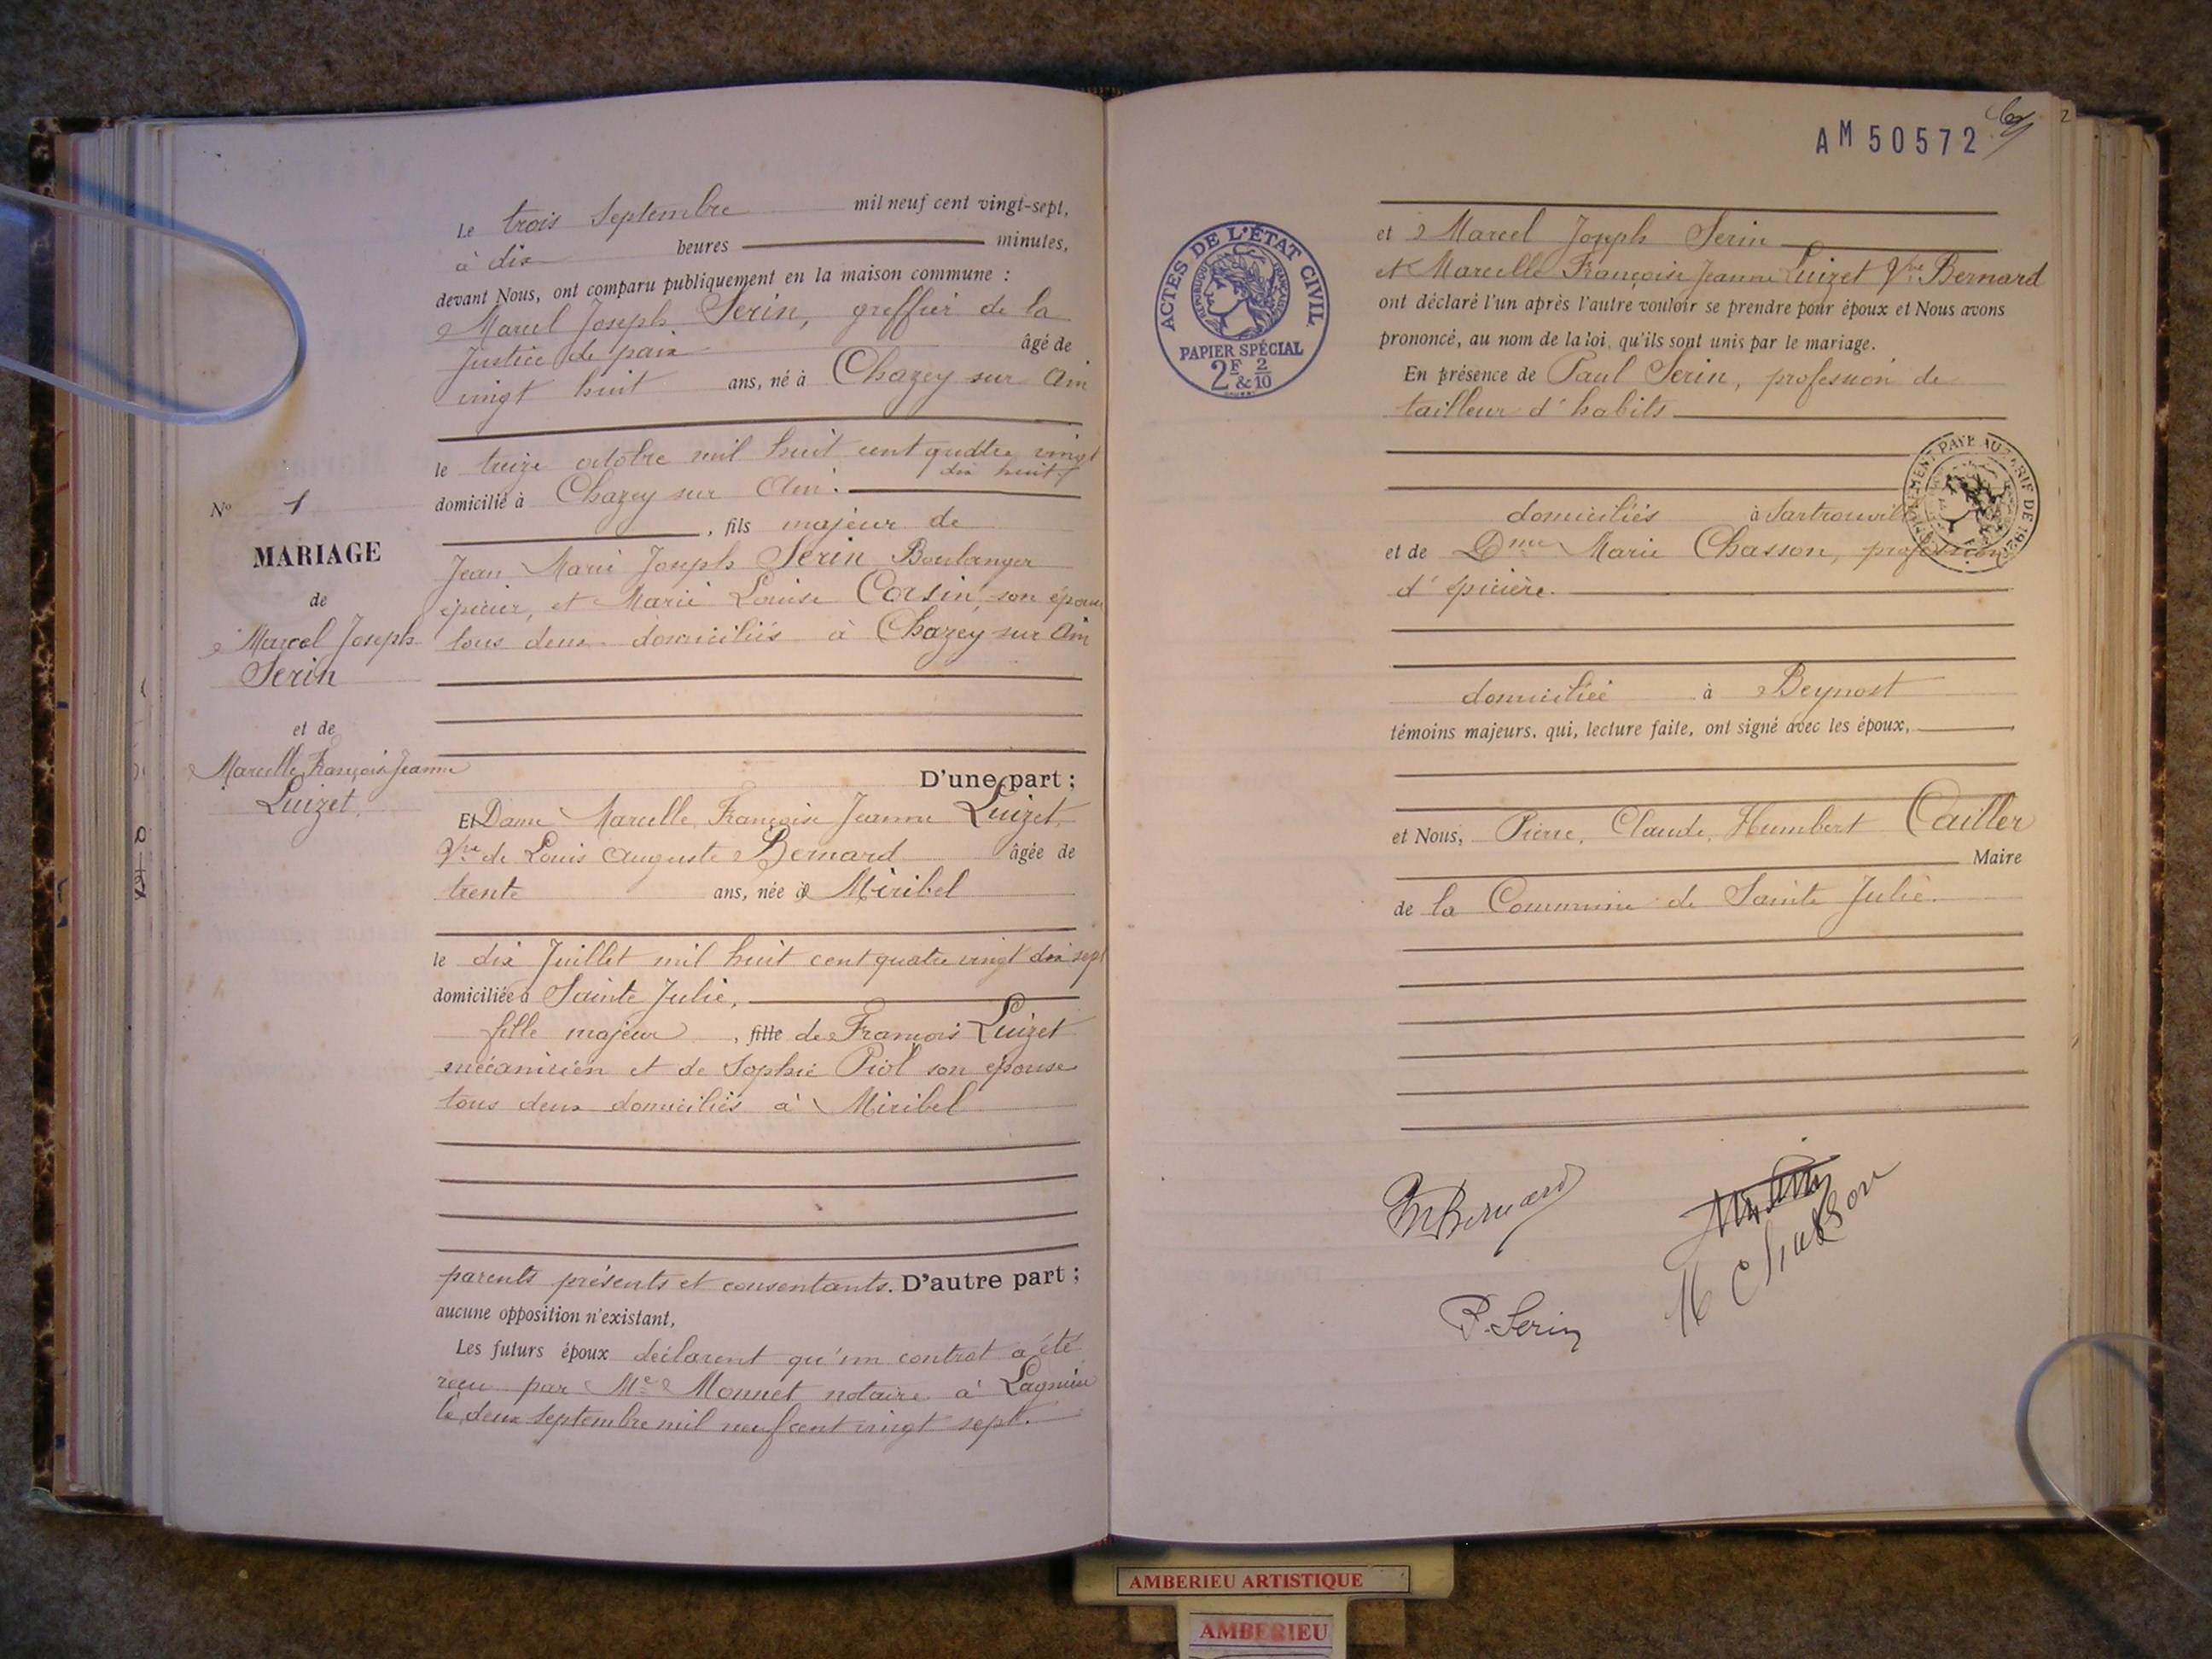 Le trois Septembre mil neuf cent vingt-sept,
à dix heures minutes,
devant Nous, ont comparu publiquement en la maison commune :
Marcel Joseph Serin, greffier de la
Justice de paix âgé de
vingt huit ans, né à Chazey sur Ain
le treize octobre mil huit cent quatre vingt
dix huit
domicilié à Chazey sur Ain.
, fils majeur de
Jean Marie Joseph Serin Boulanger
épicier, et Marie Louise Corsin, son épouse
tous deux domiciliés à Chazey sur Ain
D'une part ;
Et Dame Marcelle Françoise Jeanne Luizet,
Vve de Louis Auguste Bernard âgée de
trente ans, née à Miribel
le dix Juillet mil huit cent quatre vingt dix sept
domiciliée à Sainte Julie,
fille majeur , fille de François Luizet
mécanicien et de Sophie Piol son épouse
tous deux domiciliés à Miribel
parents présents et consentants. D'autre part ;
aucune opposition n'existant,
Les futurs époux déclarent qu'un contrat a été
recu par Me Monnet notaire à Lagnieu
le deux septembre mil neuf cent vingt sept.
No 1
MARIAGE
de
Marcel Joseph
Serin
et de
Marcelle Françoise Jeanne
Luizet.
AM 50572
2
ACTES DE L'ÉTAT CIVIL
RÉPUBLIQUE FRANÇAISE
PAPIER SPÉCIAL
2F & 2/10
et Marcel Joseph Serin
et Marcelle Françoise Jeanne Luizet Vve Bernard
ont déclaré l'un après l'autre vouloir se prendre pour époux et Nous avons
prononcé, au nom de la loi, qu'ils sont unis par le mariage.
En présence de Paul Serin, profession de
tailleur d'habits
domiciliés à Sartrouville
et de Dme Marie Chasson, profession
d'épicière.
domiciliée à Beynost
témoins majeurs, qui, lecture faite, ont signé avec les époux,
et Nous, Pierre, Claude, Humbert Cailler
Maire
de la Commune de Sainte Julie.
M Bernard
M Chasson
P. Serin
AMBERIEU ARTISTIQUE
AMBERIEU